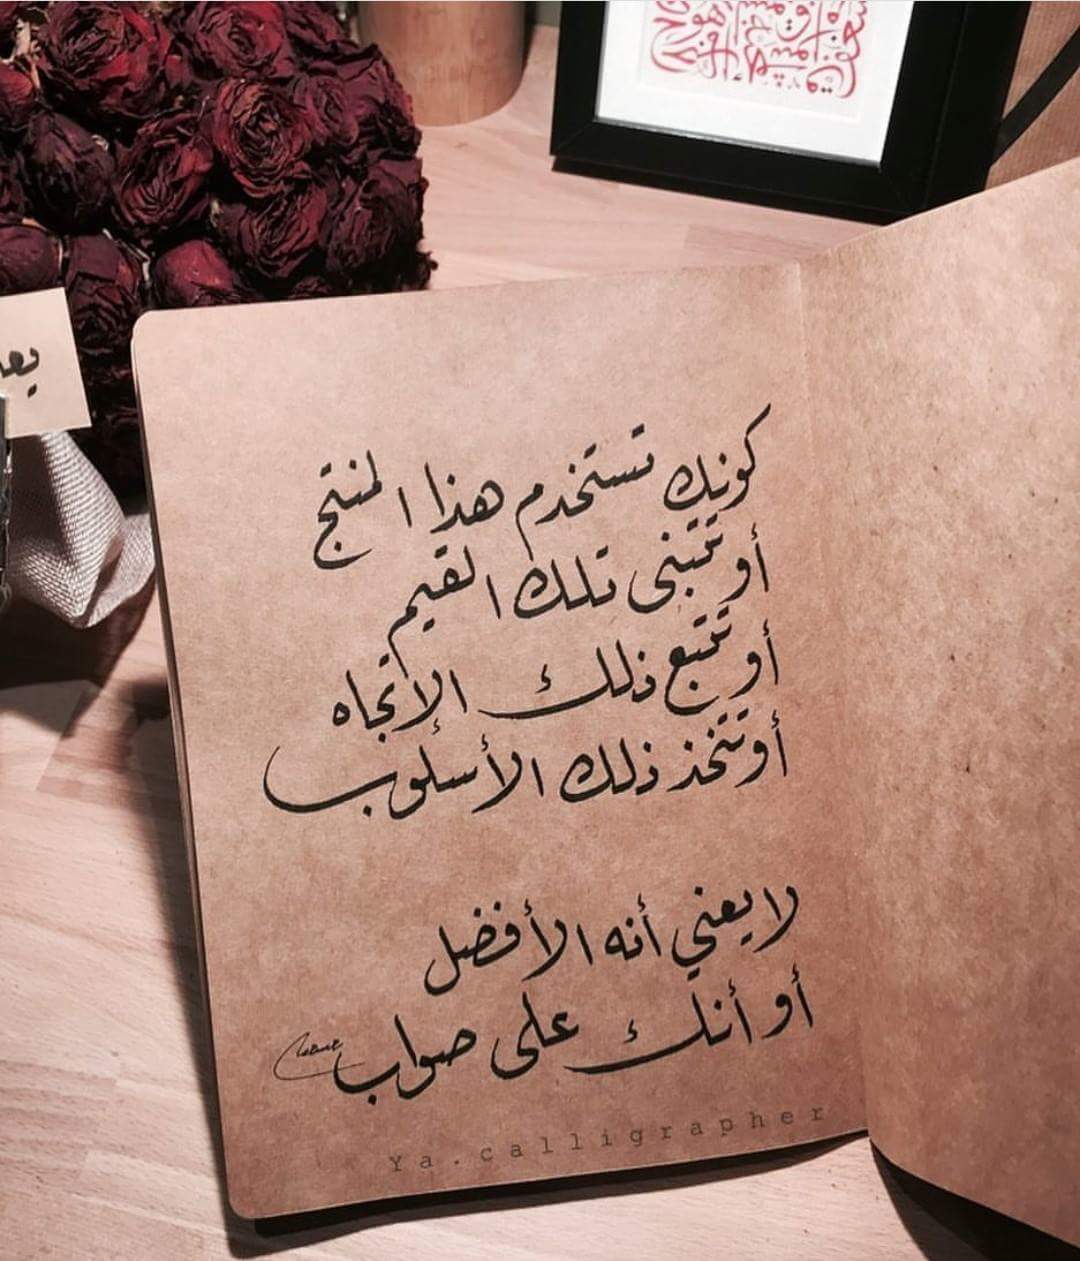 كونك تستخدم هذا المنتج
أو تتبنى تلك القيم
أو تتبع ذلك الإتجاه
أو تتخذ ذلك الأسلوب
لا يعني أنه الأفضل
أو أنك على صواب
Ya.calligrapher